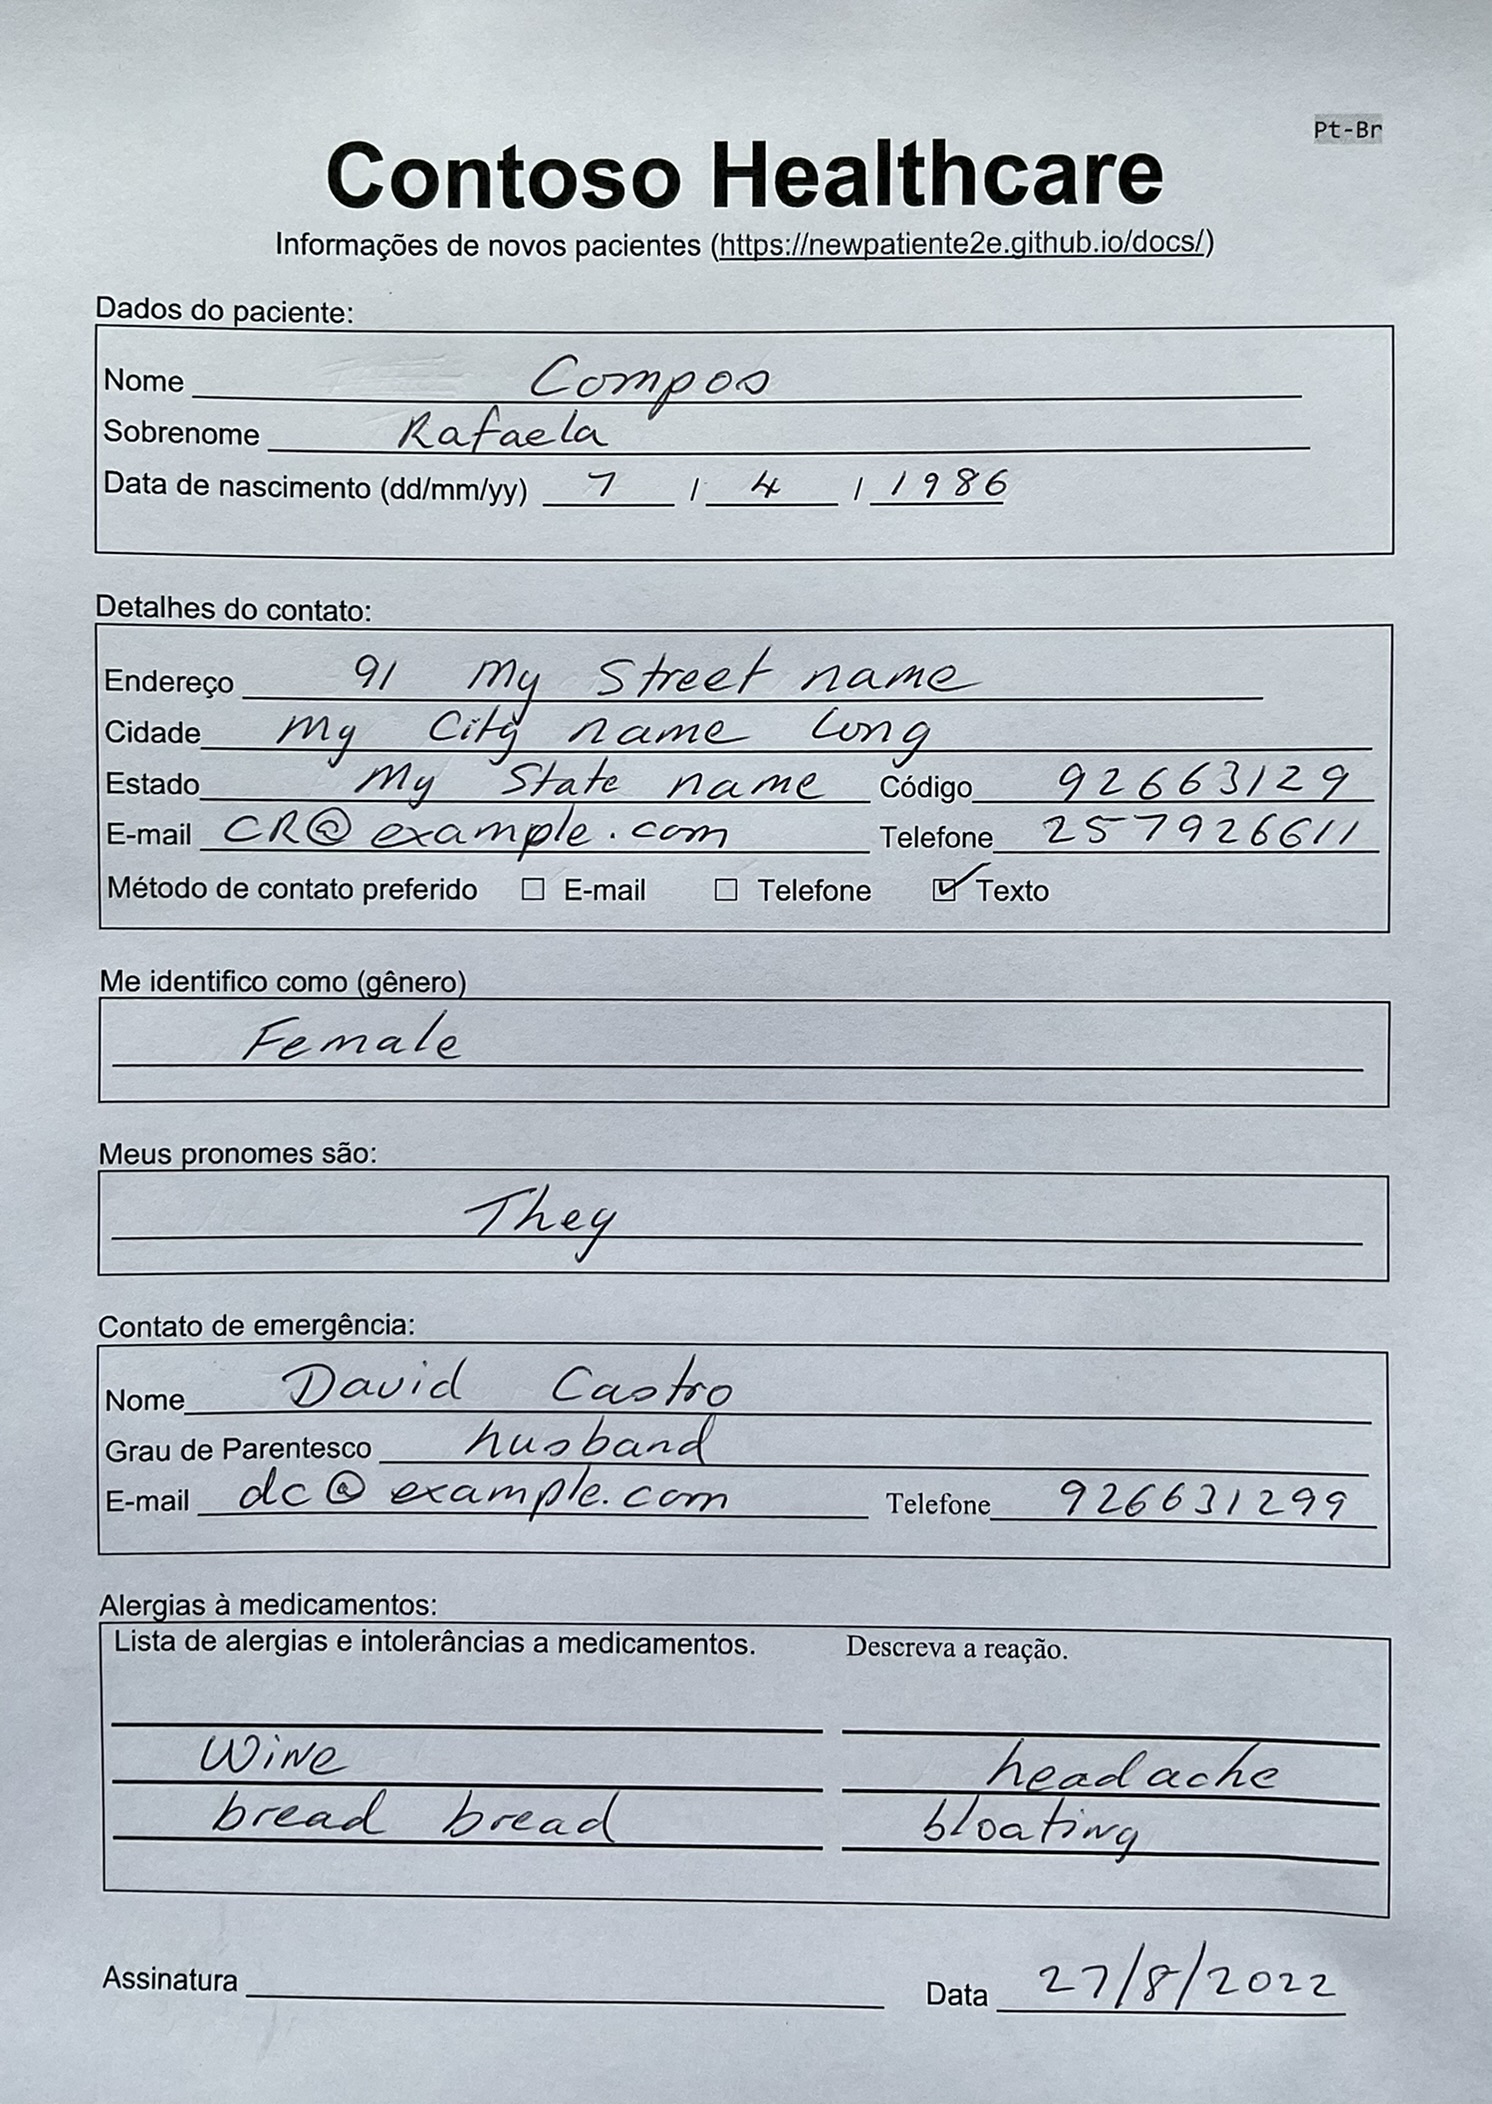 Pt-Br
Contoso Healthcare
Informações de novos pacientes (https://newpatiente2e.github.io/docs/)
Dados do paciente:
Nome Compos
Sobrenome Rafaela
Data de nascimento (dd/mm/yy) 7 / 4 / 1986
Detalhes do contato:
Endereço 91 My Street name
Cidade My City name long
Estado My State name Código 92663129
E-mail CR@example.com Telefone 257926611
Método de contato preferido ☐ E-mail ☐ Telefone ☑ Texto
Me identifico como (gênero)
Female
Meus pronomes são:
They
Contato de emergência:
Nome David Castro
Grau de Parentesco husband
E-mail dc@example.com Telefone 926631299
Alergias à medicamentos:
Lista de alergias e intolerâncias a medicamentos. Descreva a reação.
Wine headache
bread bread bloating
Assinatura Data 27/8/2022